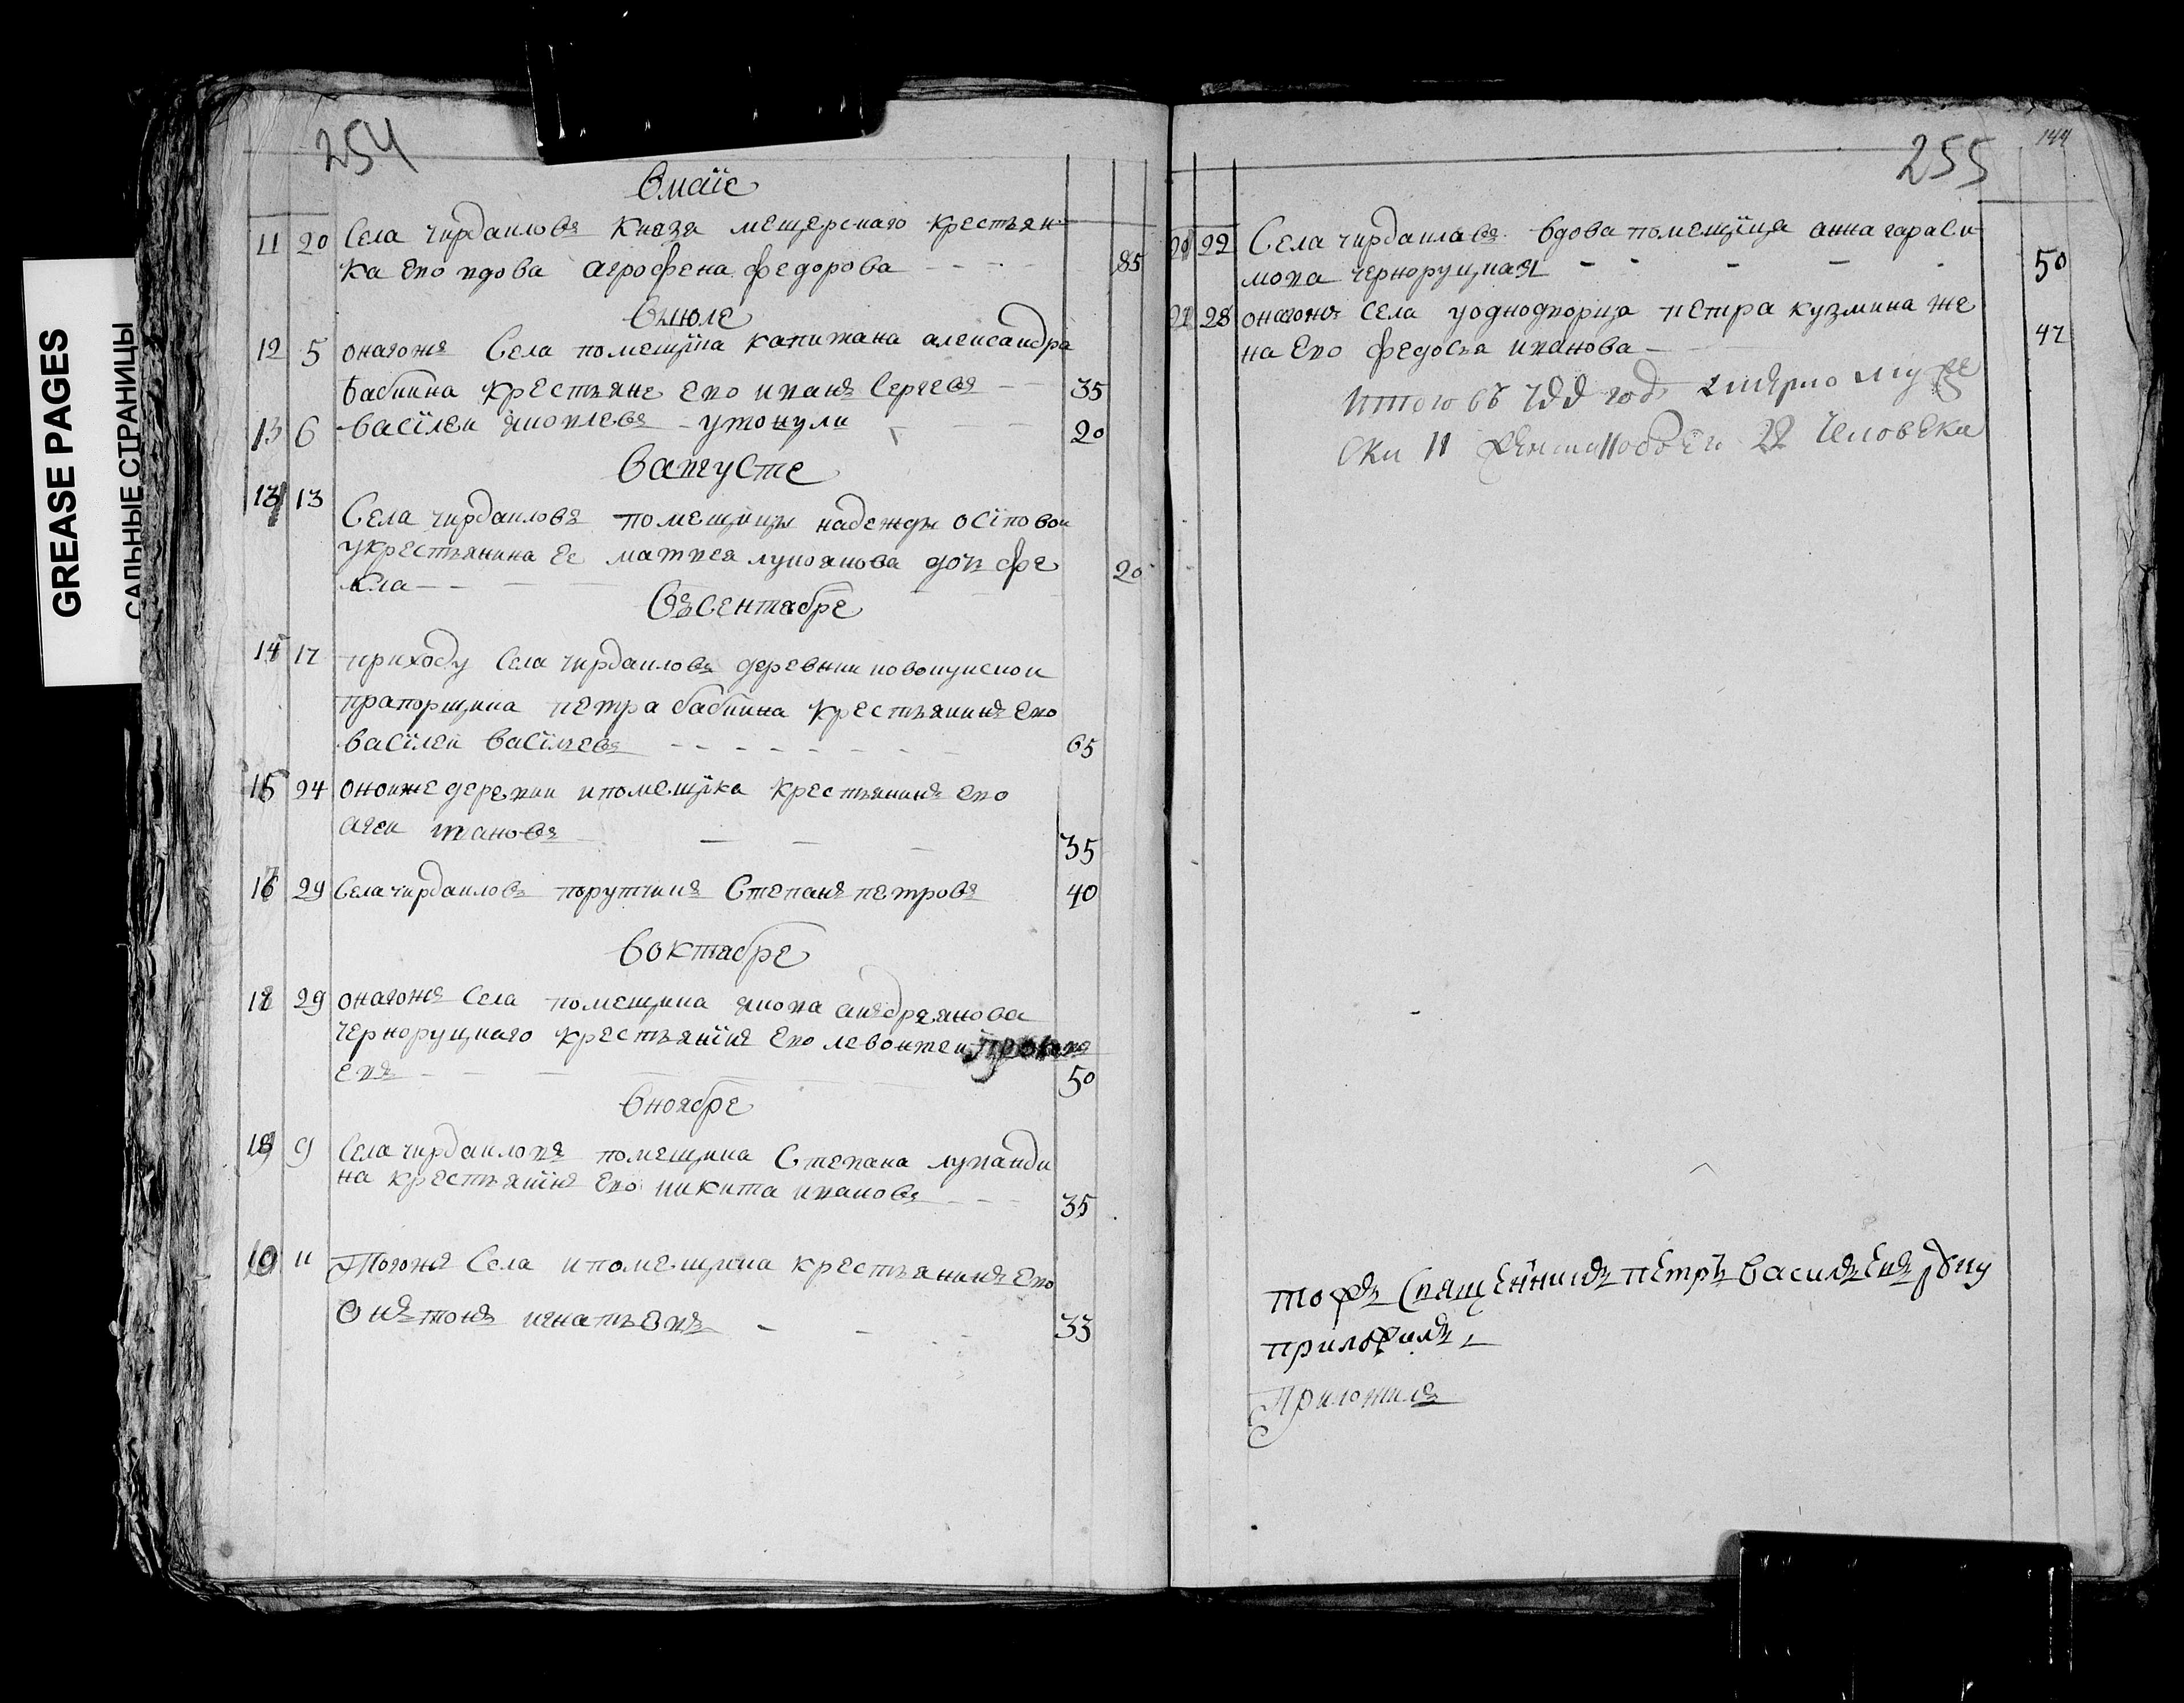 GREASE PAGES
САЛЬНЫЕ СТРАНИЦЫ
254
Вмаїе
11 20 Села чирдаиловъ Князя мещерскаго крестьян-
ка его вдова агрофена федорова 85
Виюле
12 5 онагожъ Села помещика капитана александра
бабкина крестьяне его иванъ Сергевъ 35
13 6 васїлеи яковлевъ утонули 20
Вавгусте
13 Села чирдаиловъ помещицы надежды осїповои
укрестьянина Ее матвея лукоянова дочь фе
кла 20
Въсентабре
17 приходу Села чирдаиловъ деревни
прапорщика петра бабкина крестьянинъ его
васїлеи васїльевъ 65
24 онои же деревни ипомещїка крестьянинъ его
ивановъ 35
29 Села чирдаиловъ порутчикъ Степанъ петровъ 40
Воктабре
29 онагожъ Села помещика якова андреянова
чернорущкаго крестьянїнъ его левонтеи
евъ 50
Вноябре
18 9 Села чирдаиловъ помещика Степана лупанди
на крестьянїнъ его никита ивановъ 35
11 Тогожъ Села ипомещика крестьянинъ его
Онътонъ игнатьевъ 33
144
255
22 Села чирдаиловъ вдова помещїца анна гараси
мова чернорущкая 50
28 онагожъ села уоднодворца петра кузмина же
на его федосья иванова 47
Итого въ году умерло муже
ски 11 женска 11 обоего 22 Человека
тожъ Священникъ петръ Васильевъ руку
приложилъ
Приложилъ